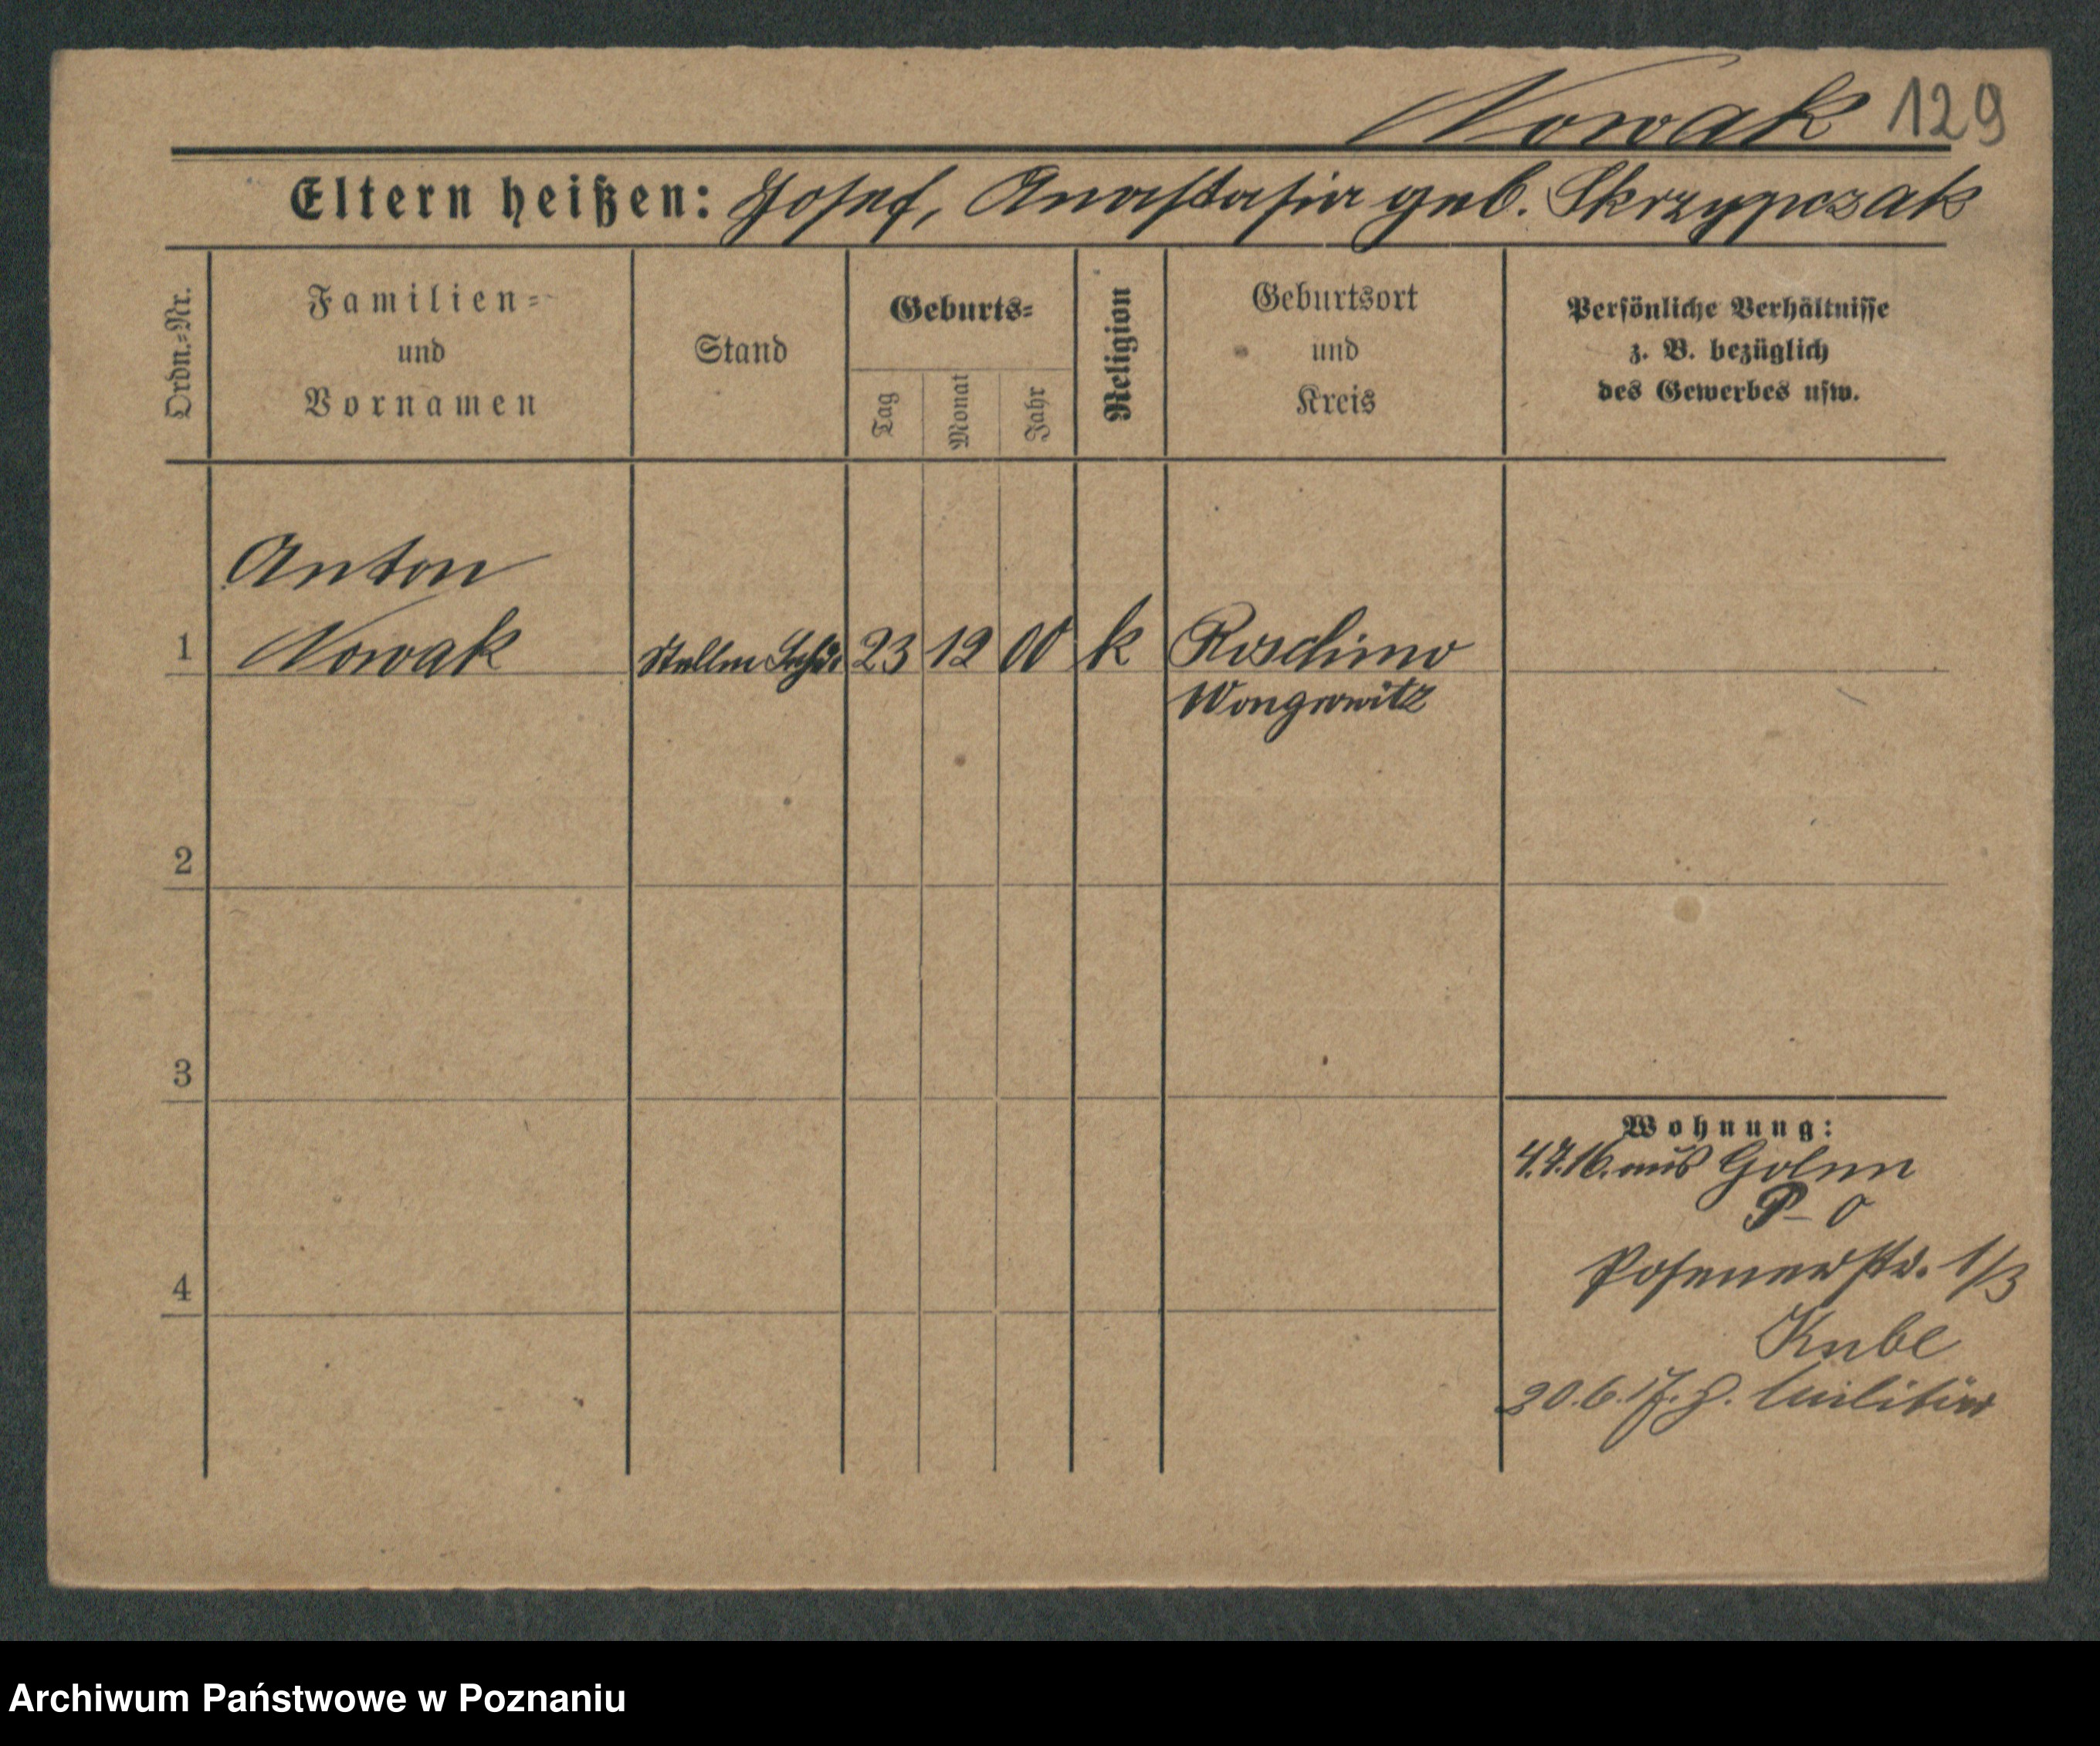 Nowak 129
Eltern heißen: Josef, Anastasia geb. Skrzypczak
Ordn.=Nr.
Familien=
und
Vornamen
Stand
Geburts=
Tag
Monat
Jahr
Religion
Geburtsort
und
Kreis
Persönliche Verhältnisse
z. B. bezüglich
des Gewerbes usw.
Anton
1 Nowak 23 12 00 k Roschimo
Wongrowitz
2
3
4
Wohnung:
4.7.16. aus
P- O
Posenerstr. 1/3
Kube
30.6.17. z. Militär
Archiwum Państwowe w Poznaniu